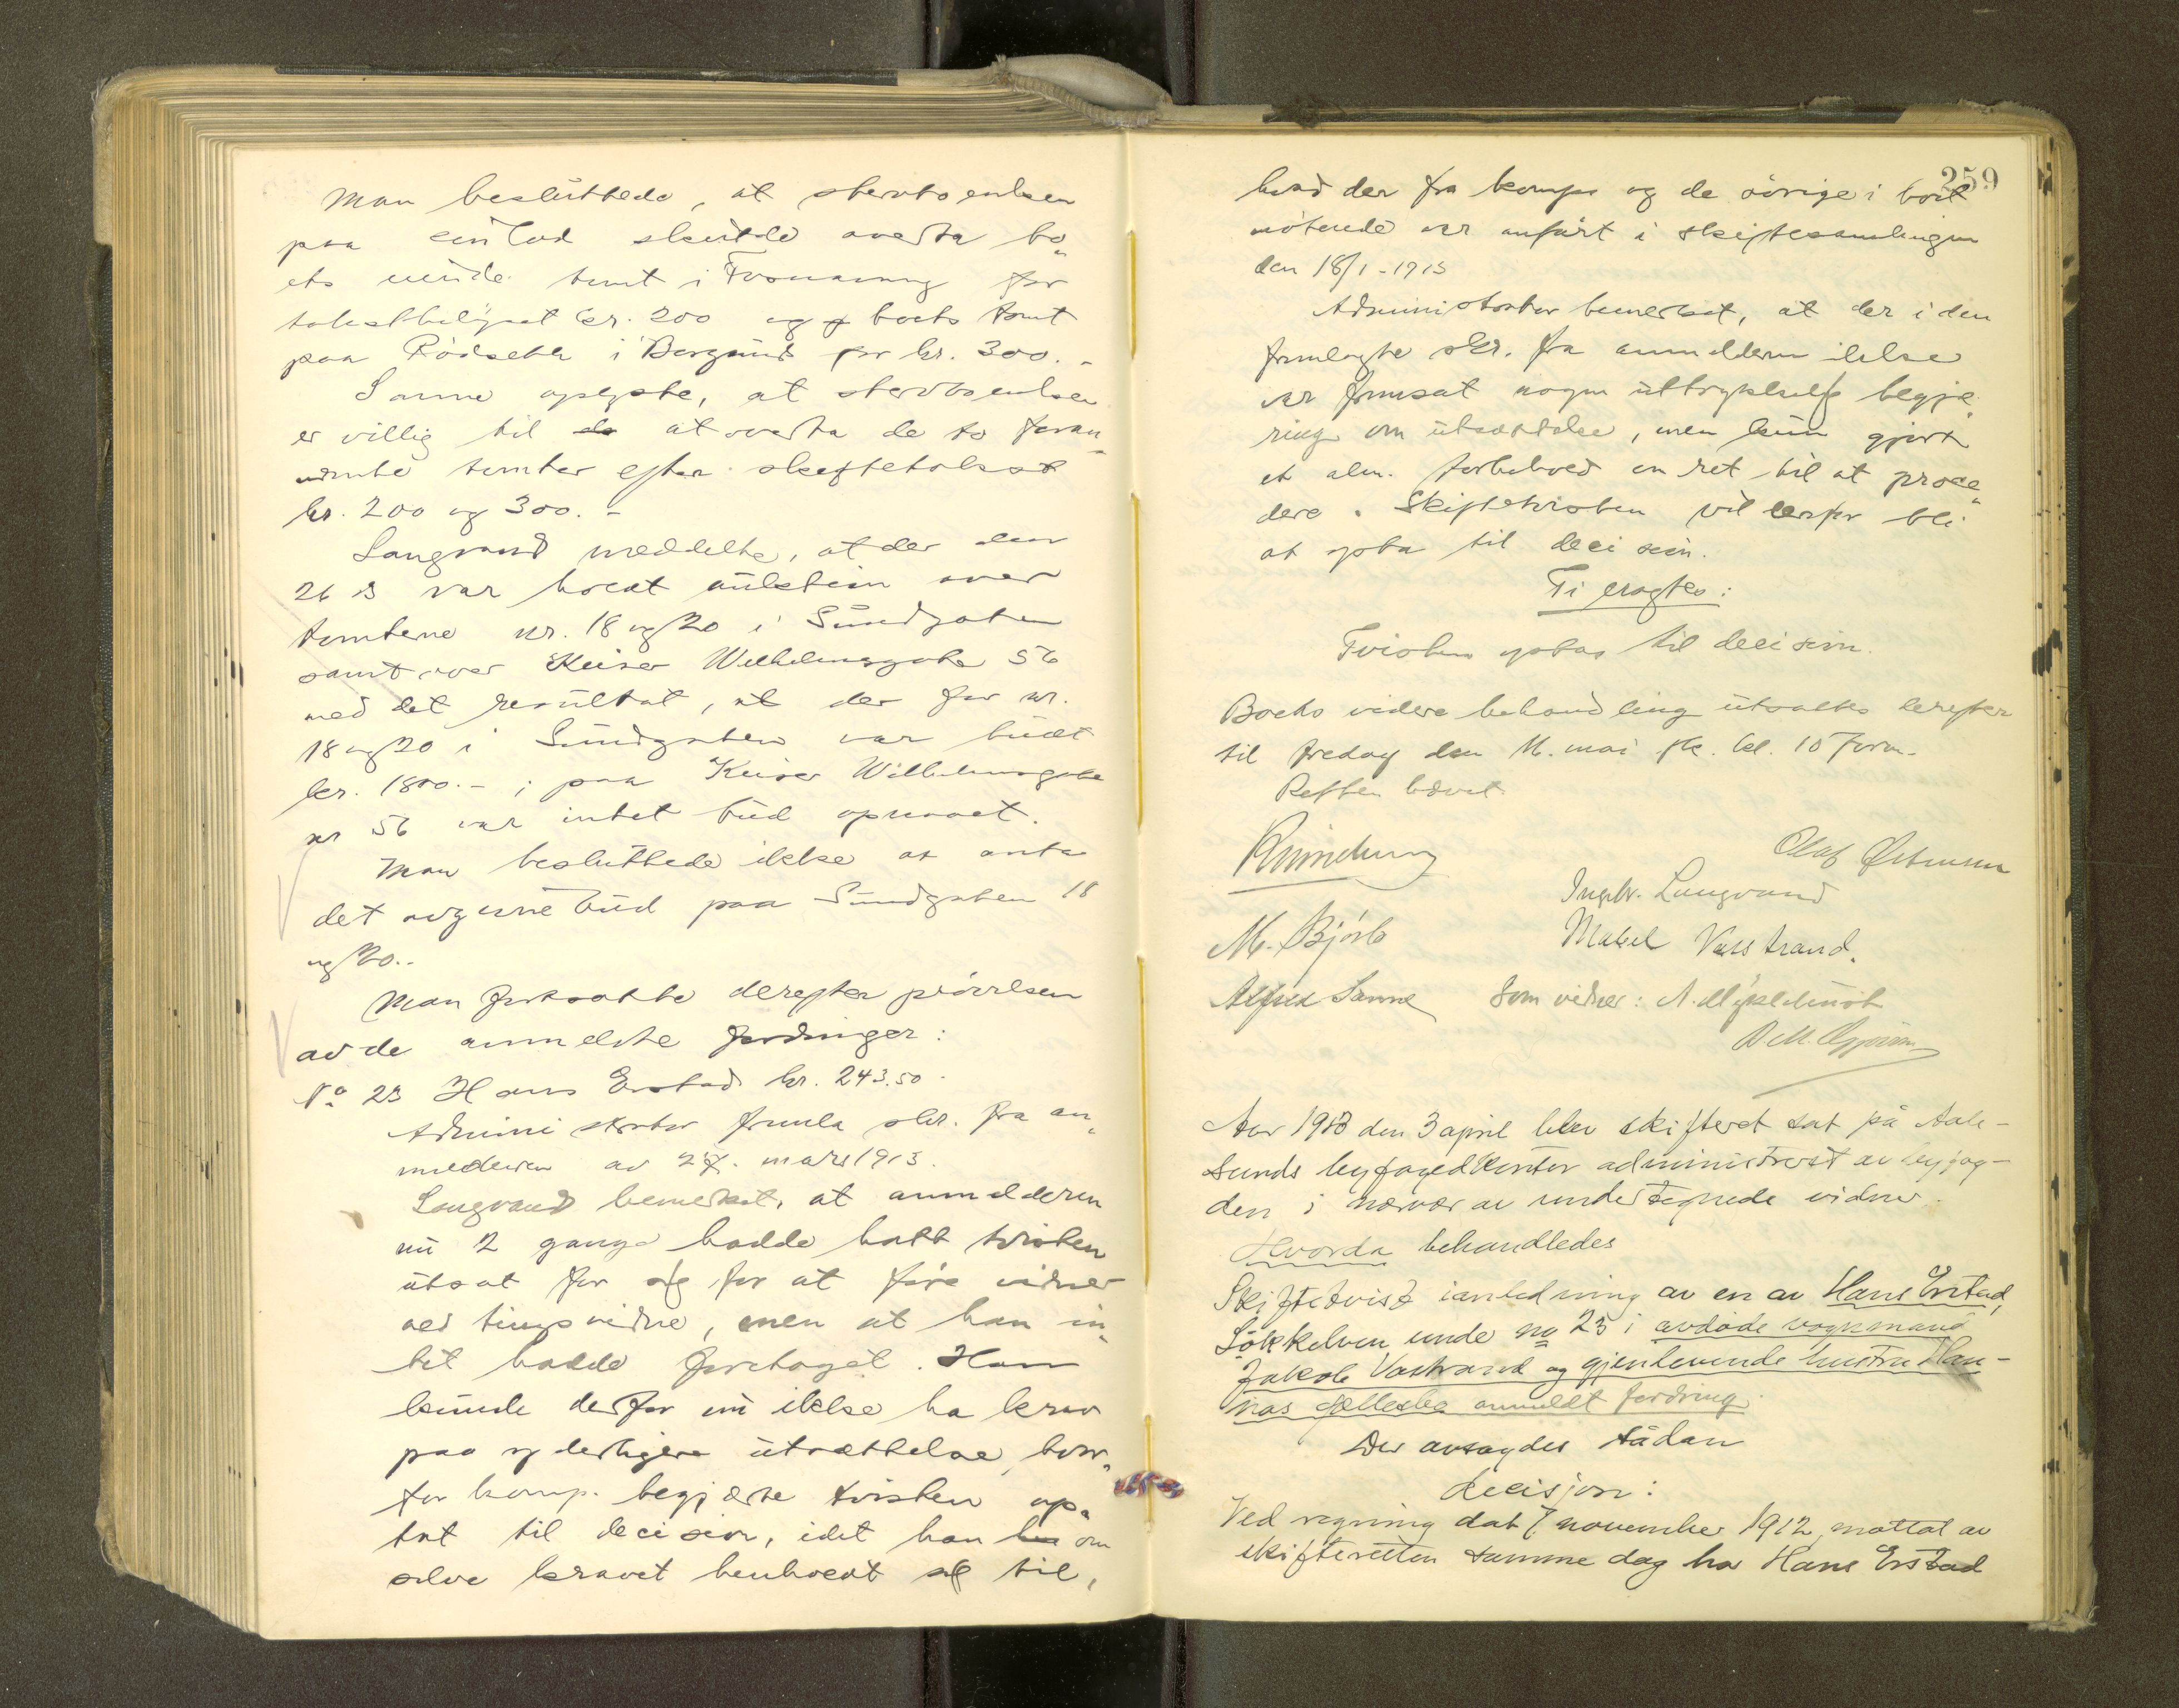 Man besluttede, at stervboenken
paa sin lod skulde overta bo„
ets urunde tomt i Tronvaag for
takstbeløpet kr. 200 og boets tomt
paa Rödsæter i Borgund for kr. 300.-
Sanne oplyste, at stervboenken
er villig til at overta de to foran„
nævnte tomter efter skiftetakst
kr. 200 og 300.-
Langvand meddelte, at der den
26 ds var holdt auktion over
tomterne nr. 18 og 20 i Sundgaten
samt over Keiser Wilhelmsgate 56
med det resultat, at der for nr.
18 og 20 i Sundgaten var budt
kr. 1800.- ; paa Keiser Wilhelmsgate
nr 56 var intet bud opnaaet.
Man besluttede ikke at anta
det avgivne bud paa Sundgaten 18
og 20.-
Man fortsatte derefter prövelsen
av de anmeldte fordringer:
No 23 Hans Erstad kr. 243.50.
Administrator fremla skr. fra an„
melderen av 27. mars 1913.
Langvand bemerket, at anmelderen
nu 2 gange hadde hatt tvisten
utsat for sig for at före vidner
ved tingsvidne, men at han in„
tet hadde foretaget. Han
kunde derfor nu ikke ha krav
paa yderligere utsættelse, hvor„
for komp. begjærte tvisten op„
tat til decision, idet han om
selve kravet henholdt sig til,
259
hvad der fra komp. og de övrige i boet
mötende var anfört i skiftesamlingen
den 18/1-1913
Administrator bemerket, at der i den
fremlagte skr. fra anmelderen ikke
var fremsat nogen uttrykkelig begjæ„
ring om utsættelse, men kun gjort
et alm. forbehold om ret til at proce„
dere. Skiftetvisten vil derfor bli
at opta til decision.
Ti eragtes:
Tvisten optas til decision.
Boets videre behandling utsattes derefter
til fredag den 16. mai fk. kl. 10 form.
Retten hævet.
Olaf Østensen
Ingebr. Langvand
M. Björk
Mabel Vasstrand.
Alfred Sanne
Som vidner: A. Myklebust
Aar 1913 den 3 april blev skifteret sat på Aale-
sunds byfogedkontor administrert av byfog-
den i nærvær av undertegnede vidner.
Hvorda behandledes
Skiftetvist i anledning av en av Hans Erstad,
Sökkelven, unde no 23 i avdöde vognmand
Jakob Vastrand og gjenlevende hustru Han-
nas fællesbo anmeldt fordring.
Der avsagdes sådan
decisjon:
Ved regning dat 7 november 1912, mottat av
skifteretten samme dag har Hans Erstad